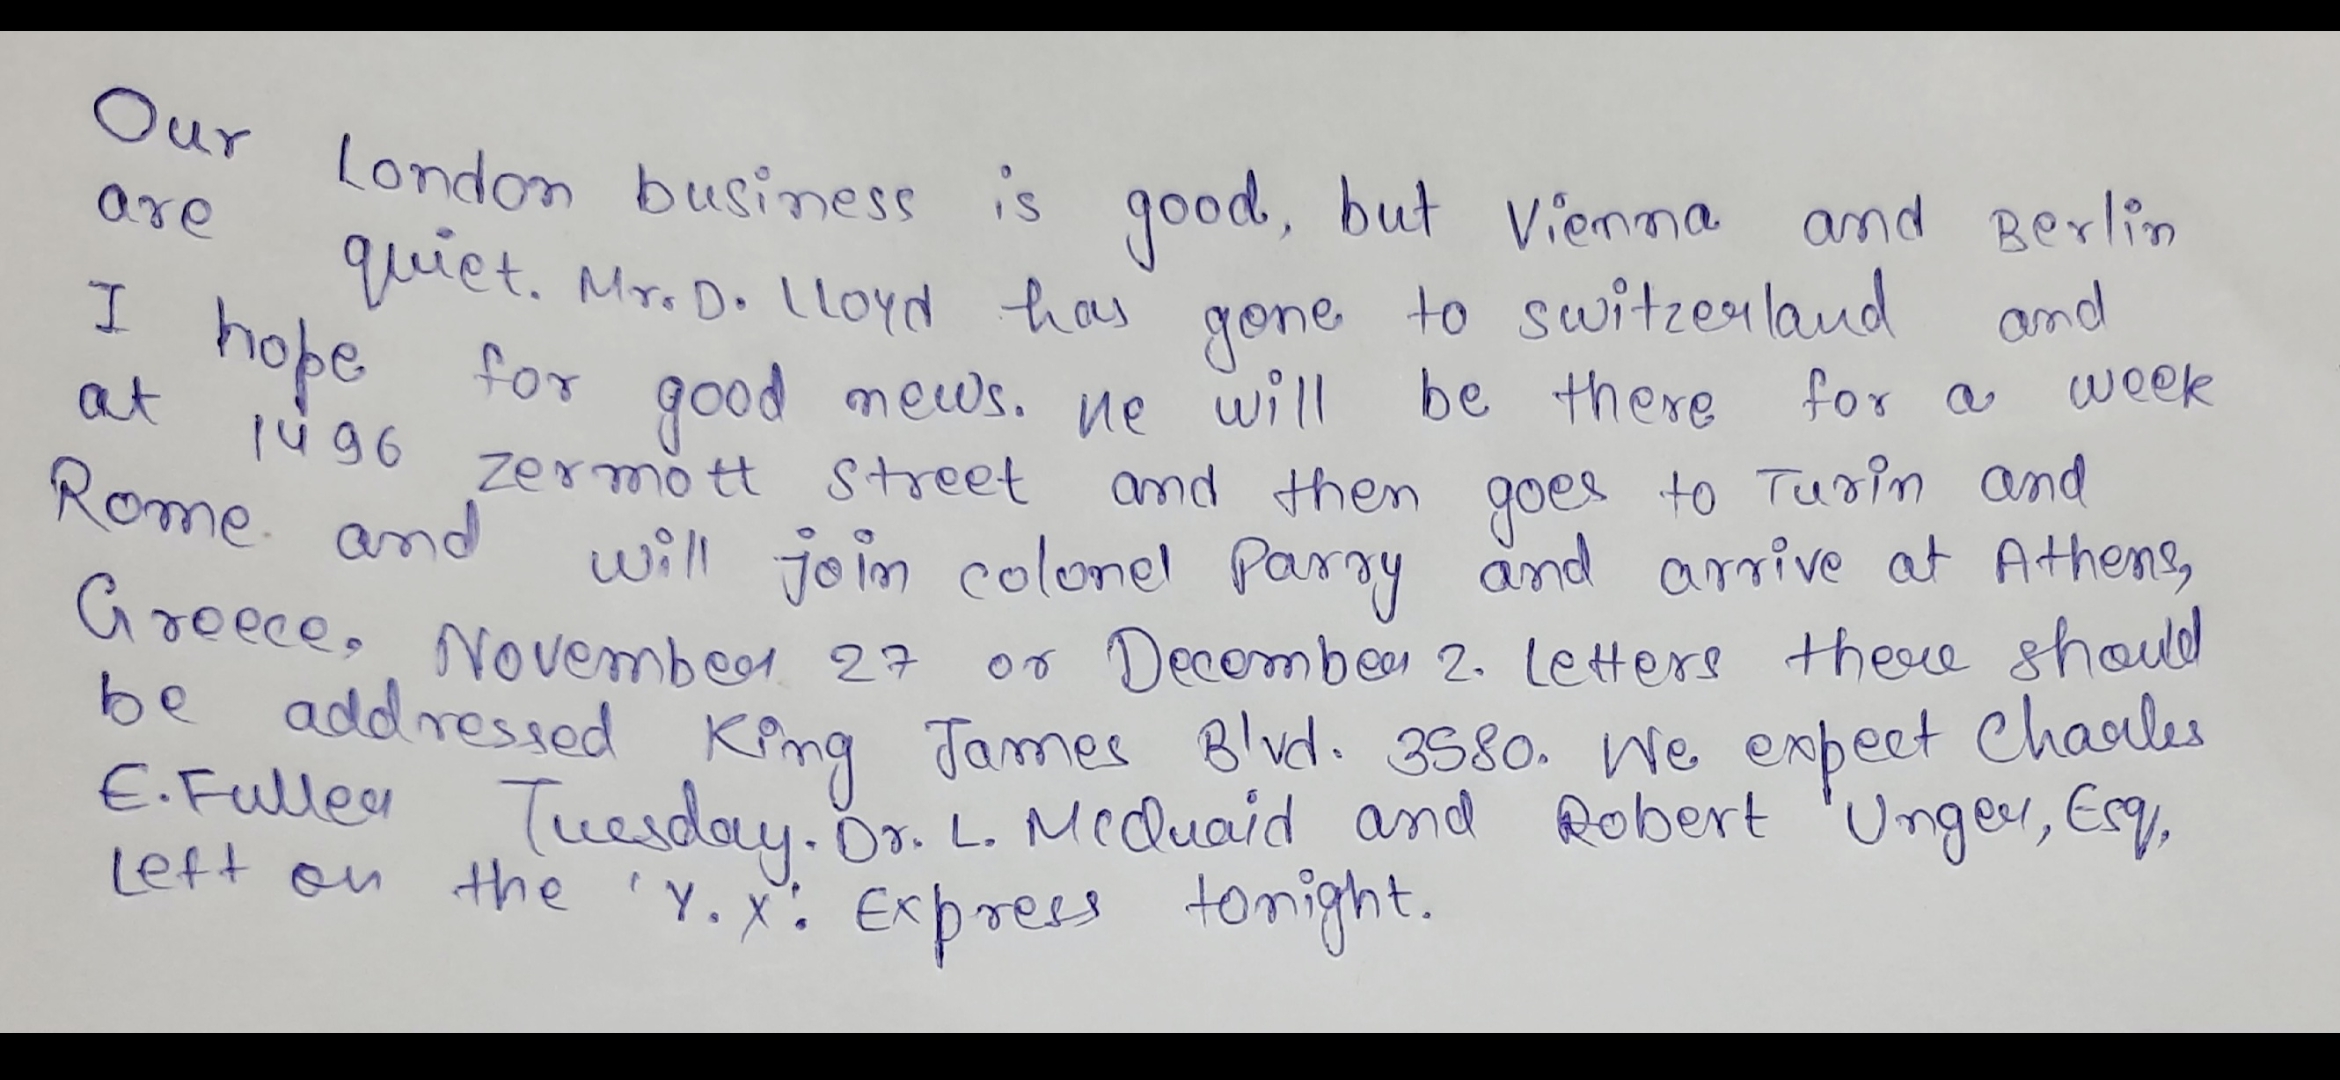 Our London business is good, but Vienna and Berlin
are quiet. Mr. D. Lloyd has gone to switzerland and
I hope for good news. He will be there for a week
at 1496 zermott street and then goes to Turin and
Rome. and will join colonel Parry and arrive at Athens,
Greece, November 27 or December 2. Letters there should
be addressed King James Blvd. 3580. We expect Charles
E. Fuller Tuesday. Dr. L. McQuaid and Robert Unger, Esq,
left on the 'Y. X'. Express tonight.